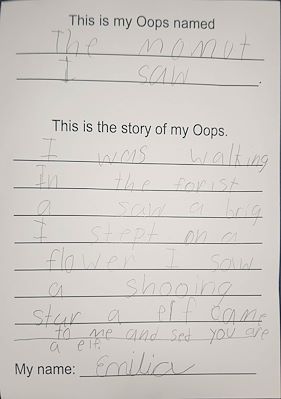 This is my Oops named
The momut
I saw
This is the story of my Oops.
I was walking
In the forist
a saw a brig
I stept on a
flower I saw
a shooing
star a elf came
to me and sed you are
a elf.
My name: Emilia